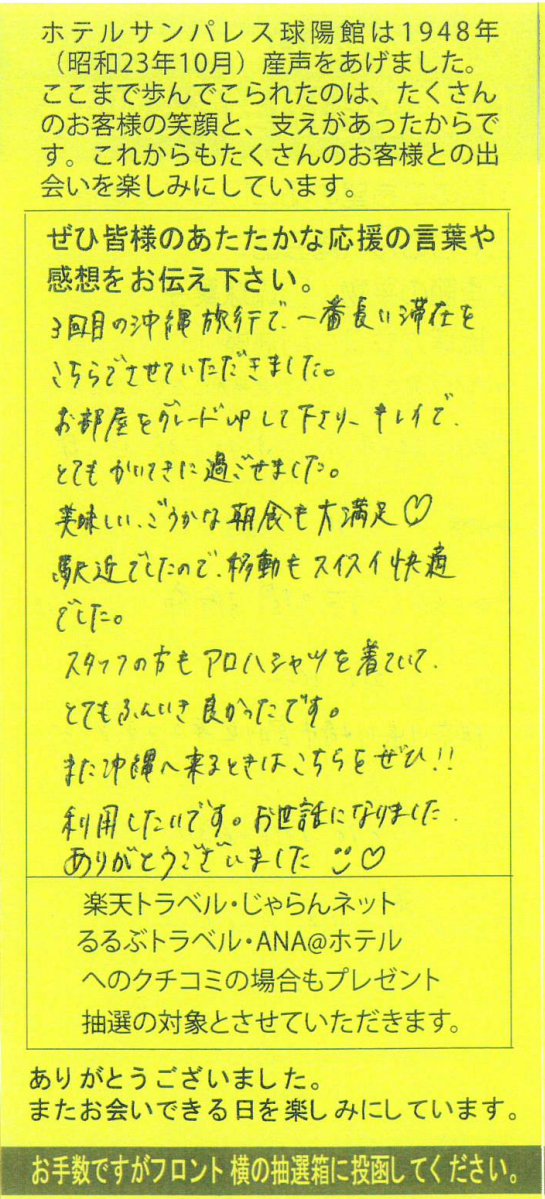 ホテルサンパレス球陽館は1948年
（昭和23年10月）産声をあげました。
ここまで歩んでこられたのは、たくさん
のお客様の笑顔と、支えがあったからで
す。これからもたくさんのお客様との出
会いを楽しみにしています。
ぜひ皆様のあたたかな応援の言葉や
感想をお伝え下さい。
3回目の沖縄旅行で、一番長い滞在を
こちらでさせていただきました。
お部屋をグレードupして下さり、キレイで、
とてもかいてきに過ごせました。
美味しい、ごうかな朝食も大満足♡
駅近でしたので、移動もスイスイ快適
でした。
スタッフの方もアロハシャツを着ていて、
とてもふんいき良かったです。
また沖縄へ来るときはこちらをぜひ!!
利用したいです。お世話になりました。
ありがとうございました ♡
楽天トラベル・じゃらんネット
るるぶトラベル・ANA@ホテル
へのクチコミの場合もプレゼント
抽選の対象とさせていただきます。
ありがとうございました。
またお会いできる日を楽しみにしています。
お手数ですがフロント横の抽選箱に投函してください。